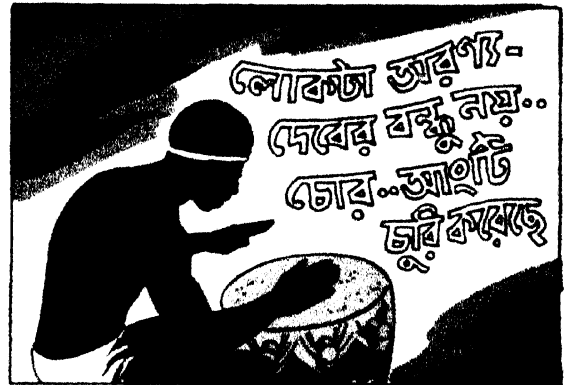 লোকটা অরণ্য-
দেবের বন্ধু নয়..
চোর..আংটি
চুরি করেছে